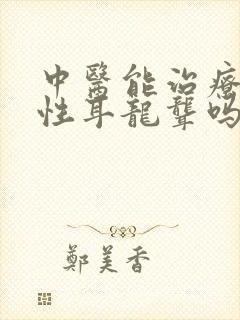 中醫能治療
性耳龍聾嗎
鄭美香